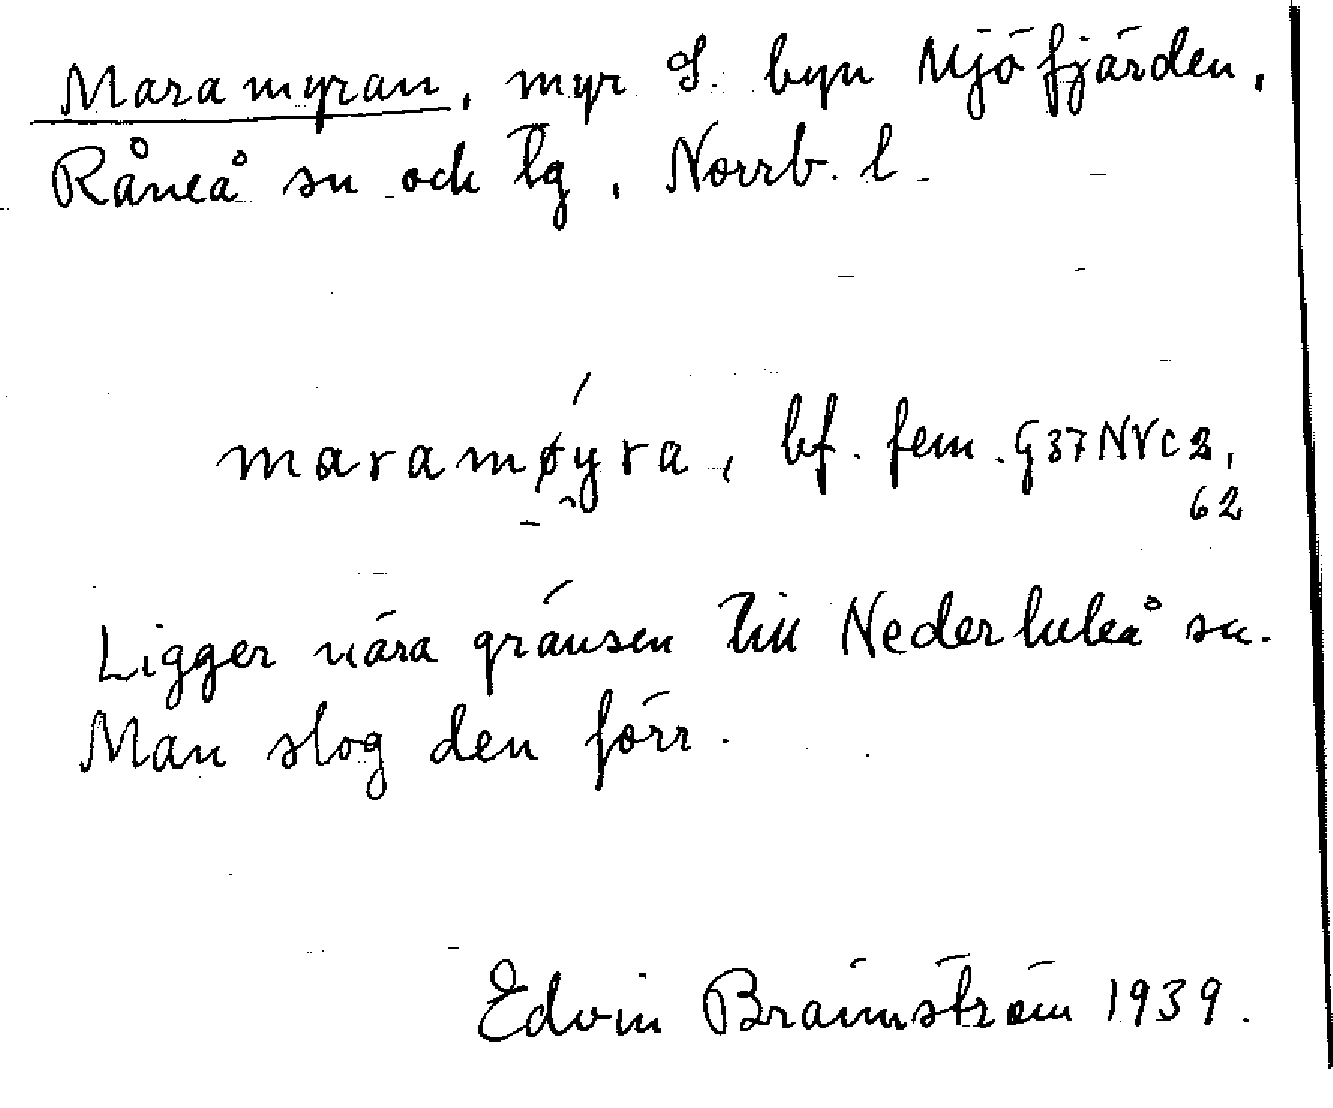 Maramyran, myr S. byn Mjöfjärden,
Råneå sn och tg, Norrb. l.
maramøyra, bf. fem. G37NVc2,
62
Ligger nära gränsen till Nederluleå sn.
Man slog den förr.
Edvin Brännström 1939.